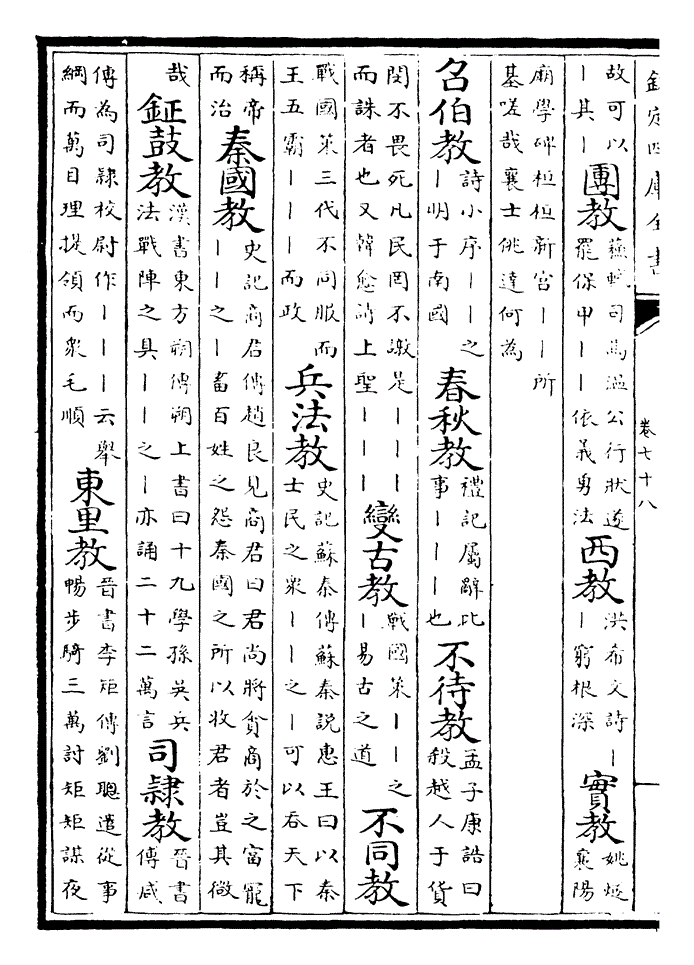 欽定四庫全書 卷七十八
故可以
丨其丨
團教
蘇軾司馬溫公行狀遂
罷保甲丨丨依義勇法
西教
洪希文詩丨
丨窮根深
實教
姚燧
襄陽
廟學碑桓桓新宫丨丨所
基嗟哉襄士佻達何為
召伯教
詩小序丨丨之
丨明于南國
春秋教
禮記屬辭比
事丨丨丨也
不待教
孟子康誥曰
殺越人于貨
閔不畏死凡民罔不譈是丨丨丨
而誅者也又韓愈詩上聖丨丨丨
變古教
戰國策丨丨之
丨易古之道
不同教
戰國策三代不同服而
王五霸丨丨丨而政
兵法教
史記蘇秦傳蘇秦説惠王曰以秦
士民之衆丨丨之丨可以吞天下
稱帝
而治
秦國教
史記商君傳趙良見商君曰君尚將貪商於之富寵
丨丨之丨畜百姓之怨秦國之所以收君者豈其微
哉
鉦鼓教
漢書東方朔傳朔上書曰十九學孫吳兵
法戰陣之具丨丨之丨亦誦二十二萬言
司隸教
晉書
傳咸
傳為司隸校尉作丨丨丨云舉
綱而萬目理提領而衆毛順
東里教
晉書李矩傳劉聰遣從事
暢步騎三萬討矩矩謀夜